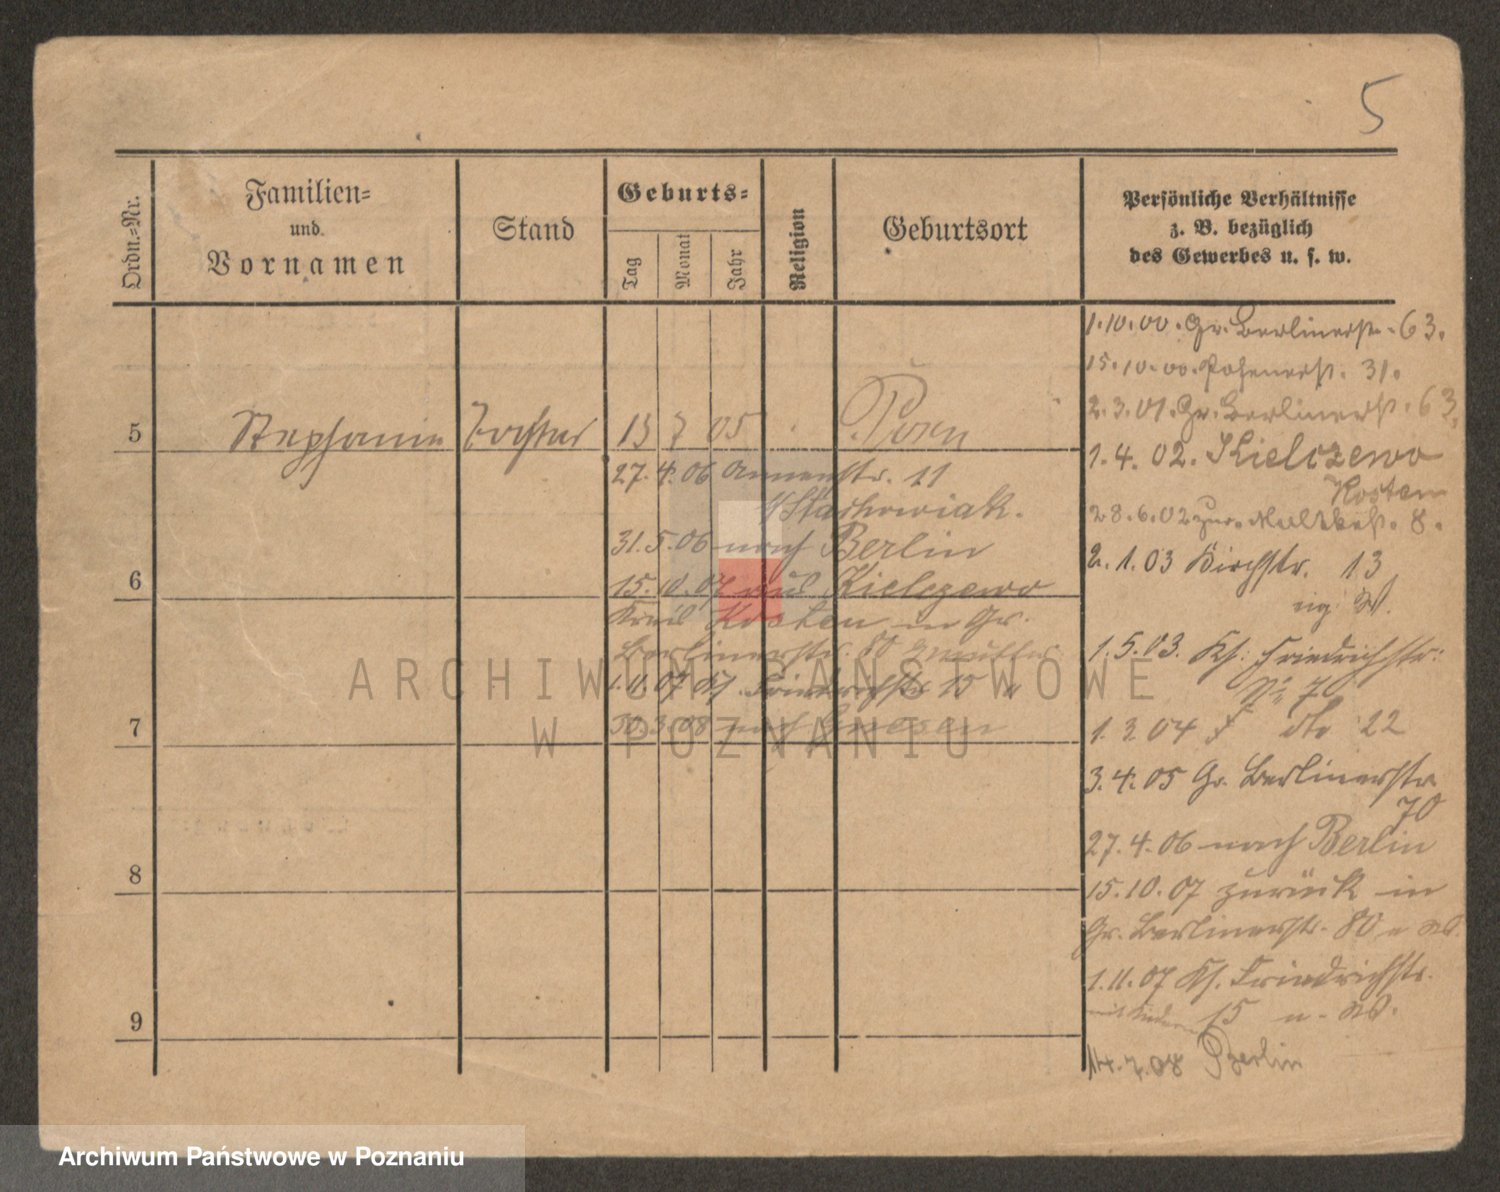 5
Ordn.=Nr.
Familien=
und
Vornamen
Stand
Geburts=
Tag
Monat
Jahr
Religion
Geburtsort
Persönliche Verhältnisse
z. B. bezüglich
des Gewerbes u. s. w.
5 Stephanie Tochter 13 7 05 Posen
27.4.06 Annenstr. 11
b/Stachowiak.
31.5.06 nach Berlin
6
15.10.07 aus Kielczewo
Kreis Kosten in Gr.
Berlinerstr. 80 Mutter
1.11.07 Friedrichstr 15 "
7
30.3.08 nach
8
9
1.10.00. Gr. Berlinerstr. 63.
15.10.00. Posenerst. 31.
2.3.01. Gr. Berlinerst. 63.
1.4.02. Kielczewo
Kosten
28.6.02 zur. Moltkest. 8.
2.1.03 Kirchstr. 13
eig. W.
1.5.03. Kf. Friedrichstr.
No 70
1.3.04 dto 22
3.4.05 Gr. Berlinerstr
70
27.4.06 nach Berlin
15.10.07 zurück in
Gr. Berlinerstr. 80 e W.
1.11.07 Kf. Friedrichstr.
15 W.
14.7.08 Berlin
ARCHIWUM PAŃSTWOWE
W POZNANIU
Archiwum Państwowe w Poznaniu